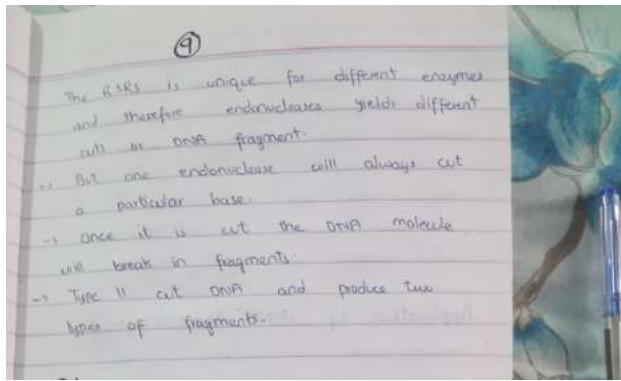 9
The RSRS is unique for different enzymes
and therefore endonucleases yields different
cuts as DNA fragment.
-> But one endonuclease will always cut
a particular base.
-> Once it is cut the DNA molecule
will break in fragments.
-> Type II cut DNA and produce two
types of fragments.